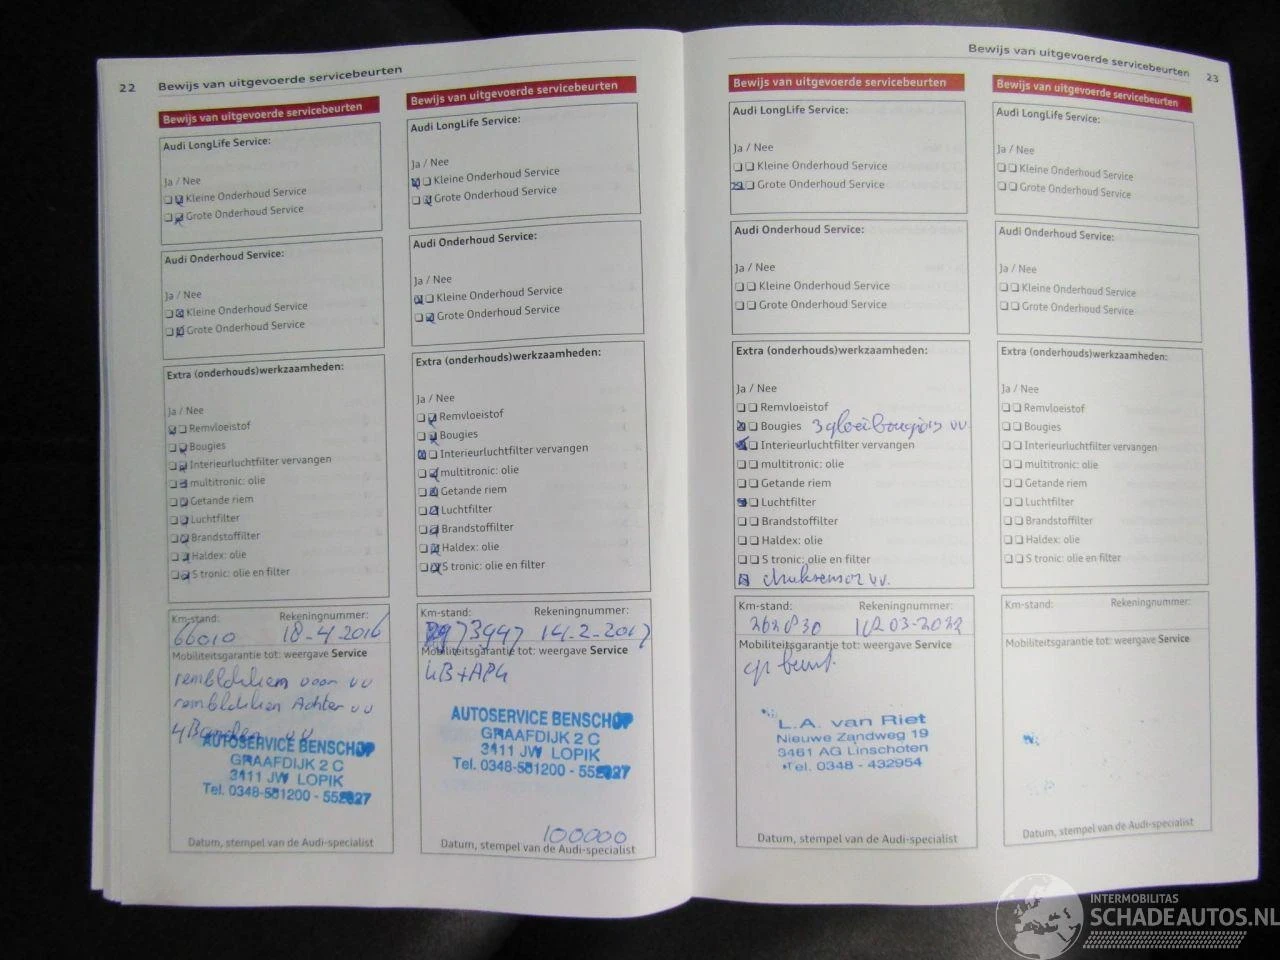 22 Bewijs van uitgevoerde servicebeurten
Bewijs van uitgevoerde servicebeurten
Audi LongLife Service:
Ja / Nee
Kleine Onderhoud Service
Grote Onderhoud Service
Audi Onderhoud Service:
Ja / Nee
Kleine Onderhoud Service
Grote Onderhoud Service
Extra (onderhouds)werkzaamheden:
Ja / Nee
Remvloeistof
Bougies
Interieurluchtfilter vervangen
multitronic: olie
Getande riem
Luchtfilter
Brandstoffilter
Haldex: olie
S tronic: olie en filter
Km-stand: Rekeningnummer:
66010 18-4-2016
Mobiliteitsgarantie tot: weergave Service
remblokken voor vv
remblokken Achter vv
4 Banden vv
AUTOSERVICE BENSCHOP
GRAAFDIJK 2 C
3411 JW LOPIK
Tel. 0348-551200 - 552827
Datum, stempel van de Audi-specialist
Bewijs van uitgevoerde servicebeurten
Audi LongLife Service:
Ja / Nee
Kleine Onderhoud Service
Grote Onderhoud Service
Audi Onderhoud Service:
Ja / Nee
Kleine Onderhoud Service
Grote Onderhoud Service
Extra (onderhouds)werkzaamheden:
Ja / Nee
Remvloeistof
Bougies
Interieurluchtfilter vervangen
multitronic: olie
Getande riem
Luchtfilter
Brandstoffilter
Haldex: olie
S tronic: olie en filter
Km-stand: Rekeningnummer:
73947 14-2-2017
Mobiliteitsgarantie tot: weergave Service
4B+APK
AUTOSERVICE BENSCHOP
GRAAFDIJK 2 C
3411 JW LOPIK
Tel. 0348-551200 - 552827
100000
Datum, stempel van de Audi-specialist
Bewijs van uitgevoerde servicebeurten 23
Bewijs van uitgevoerde servicebeurten
Audi LongLife Service:
Ja / Nee
Kleine Onderhoud Service
Grote Onderhoud Service
Audi Onderhoud Service:
Ja / Nee
Kleine Onderhoud Service
Grote Onderhoud Service
Extra (onderhouds)werkzaamheden:
Ja / Nee
Remvloeistof
Bougies 3 gloeibougies vv.
Interieurluchtfilter vervangen
multitronic: olie
Getande riem
Luchtfilter
Brandstoffilter
Haldex: olie
S tronic: olie en filter
druksensor vv.
Km-stand: Rekeningnummer:
03-2022
Mobiliteitsgarantie tot: weergave Service
gr beurt.
L.A. van Riet
Nieuwe Zandweg 19
3461 AG Linschoten
Tel. 0348 - 432954
Datum, stempel van de Audi-specialist
Bewijs van uitgevoerde servicebeurten
Audi LongLife Service:
Ja / Nee
Kleine Onderhoud Service
Grote Onderhoud Service
Audi Onderhoud Service:
Ja / Nee
Kleine Onderhoud Service
Grote Onderhoud Service
Extra (onderhouds)werkzaamheden:
Ja / Nee
Remvloeistof
Bougies
Interieurluchtfilter vervangen
multitronic: olie
Getande riem
Luchtfilter
Brandstoffilter
Haldex: olie
S tronic: olie en filter
Km-stand: Rekeningnummer:
Mobiliteitsgarantie tot: weergave Service
Datum, stempel van de Audi-specialist
INTERMOBILITAS
SCHADEAUTOS.NL